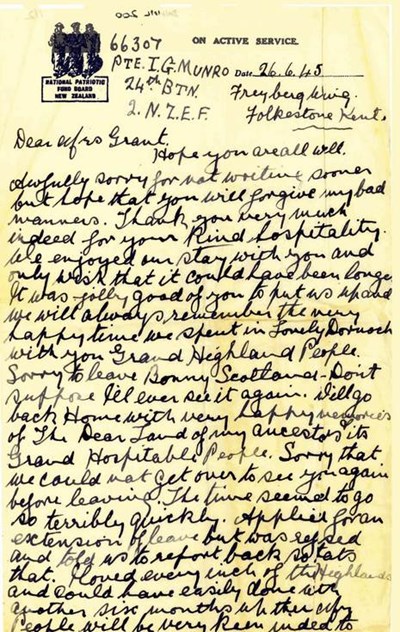 66307
ON ACTIVE SERVICE.
PTE. I. G. MUNRO Date 26.6.45
NATIONAL PATRIOTIC
FUND BOARD
NEW ZEALAND
24th BTN. Freyberg Wing.
2. N.Z.E.F. Folkestone Kent.
Dear Mrs Grant.
Hope you are all well.
Awfully sorry for not writing sooner
but hope that you will forgive my bad
manners. Thank you very much
indeed for your kind hospitality.
We enjoyed our stay with you and
only wish that it could have been longer
It was jolly good of you to put us up and
we will always remember the very
happy time we spent in Lovely Dornoch
with you Grand Highland People.
Sorry to leave Bonny Scotland - Don't
suppose I'll ever see it again. Will go
back Home with very happy memories
of The Dear Land of my ancestors its
Grand Hospitable People. Sorry that
we could not get over to see you again
before leaving. The time seemed to go
so terribly quickly. Applied for an
extension of leave but was refused
and told us to report back so that's
that. I loved every inch of the Highlands
and could have easily done with
another six months up there. My
People will be very keen indeed to